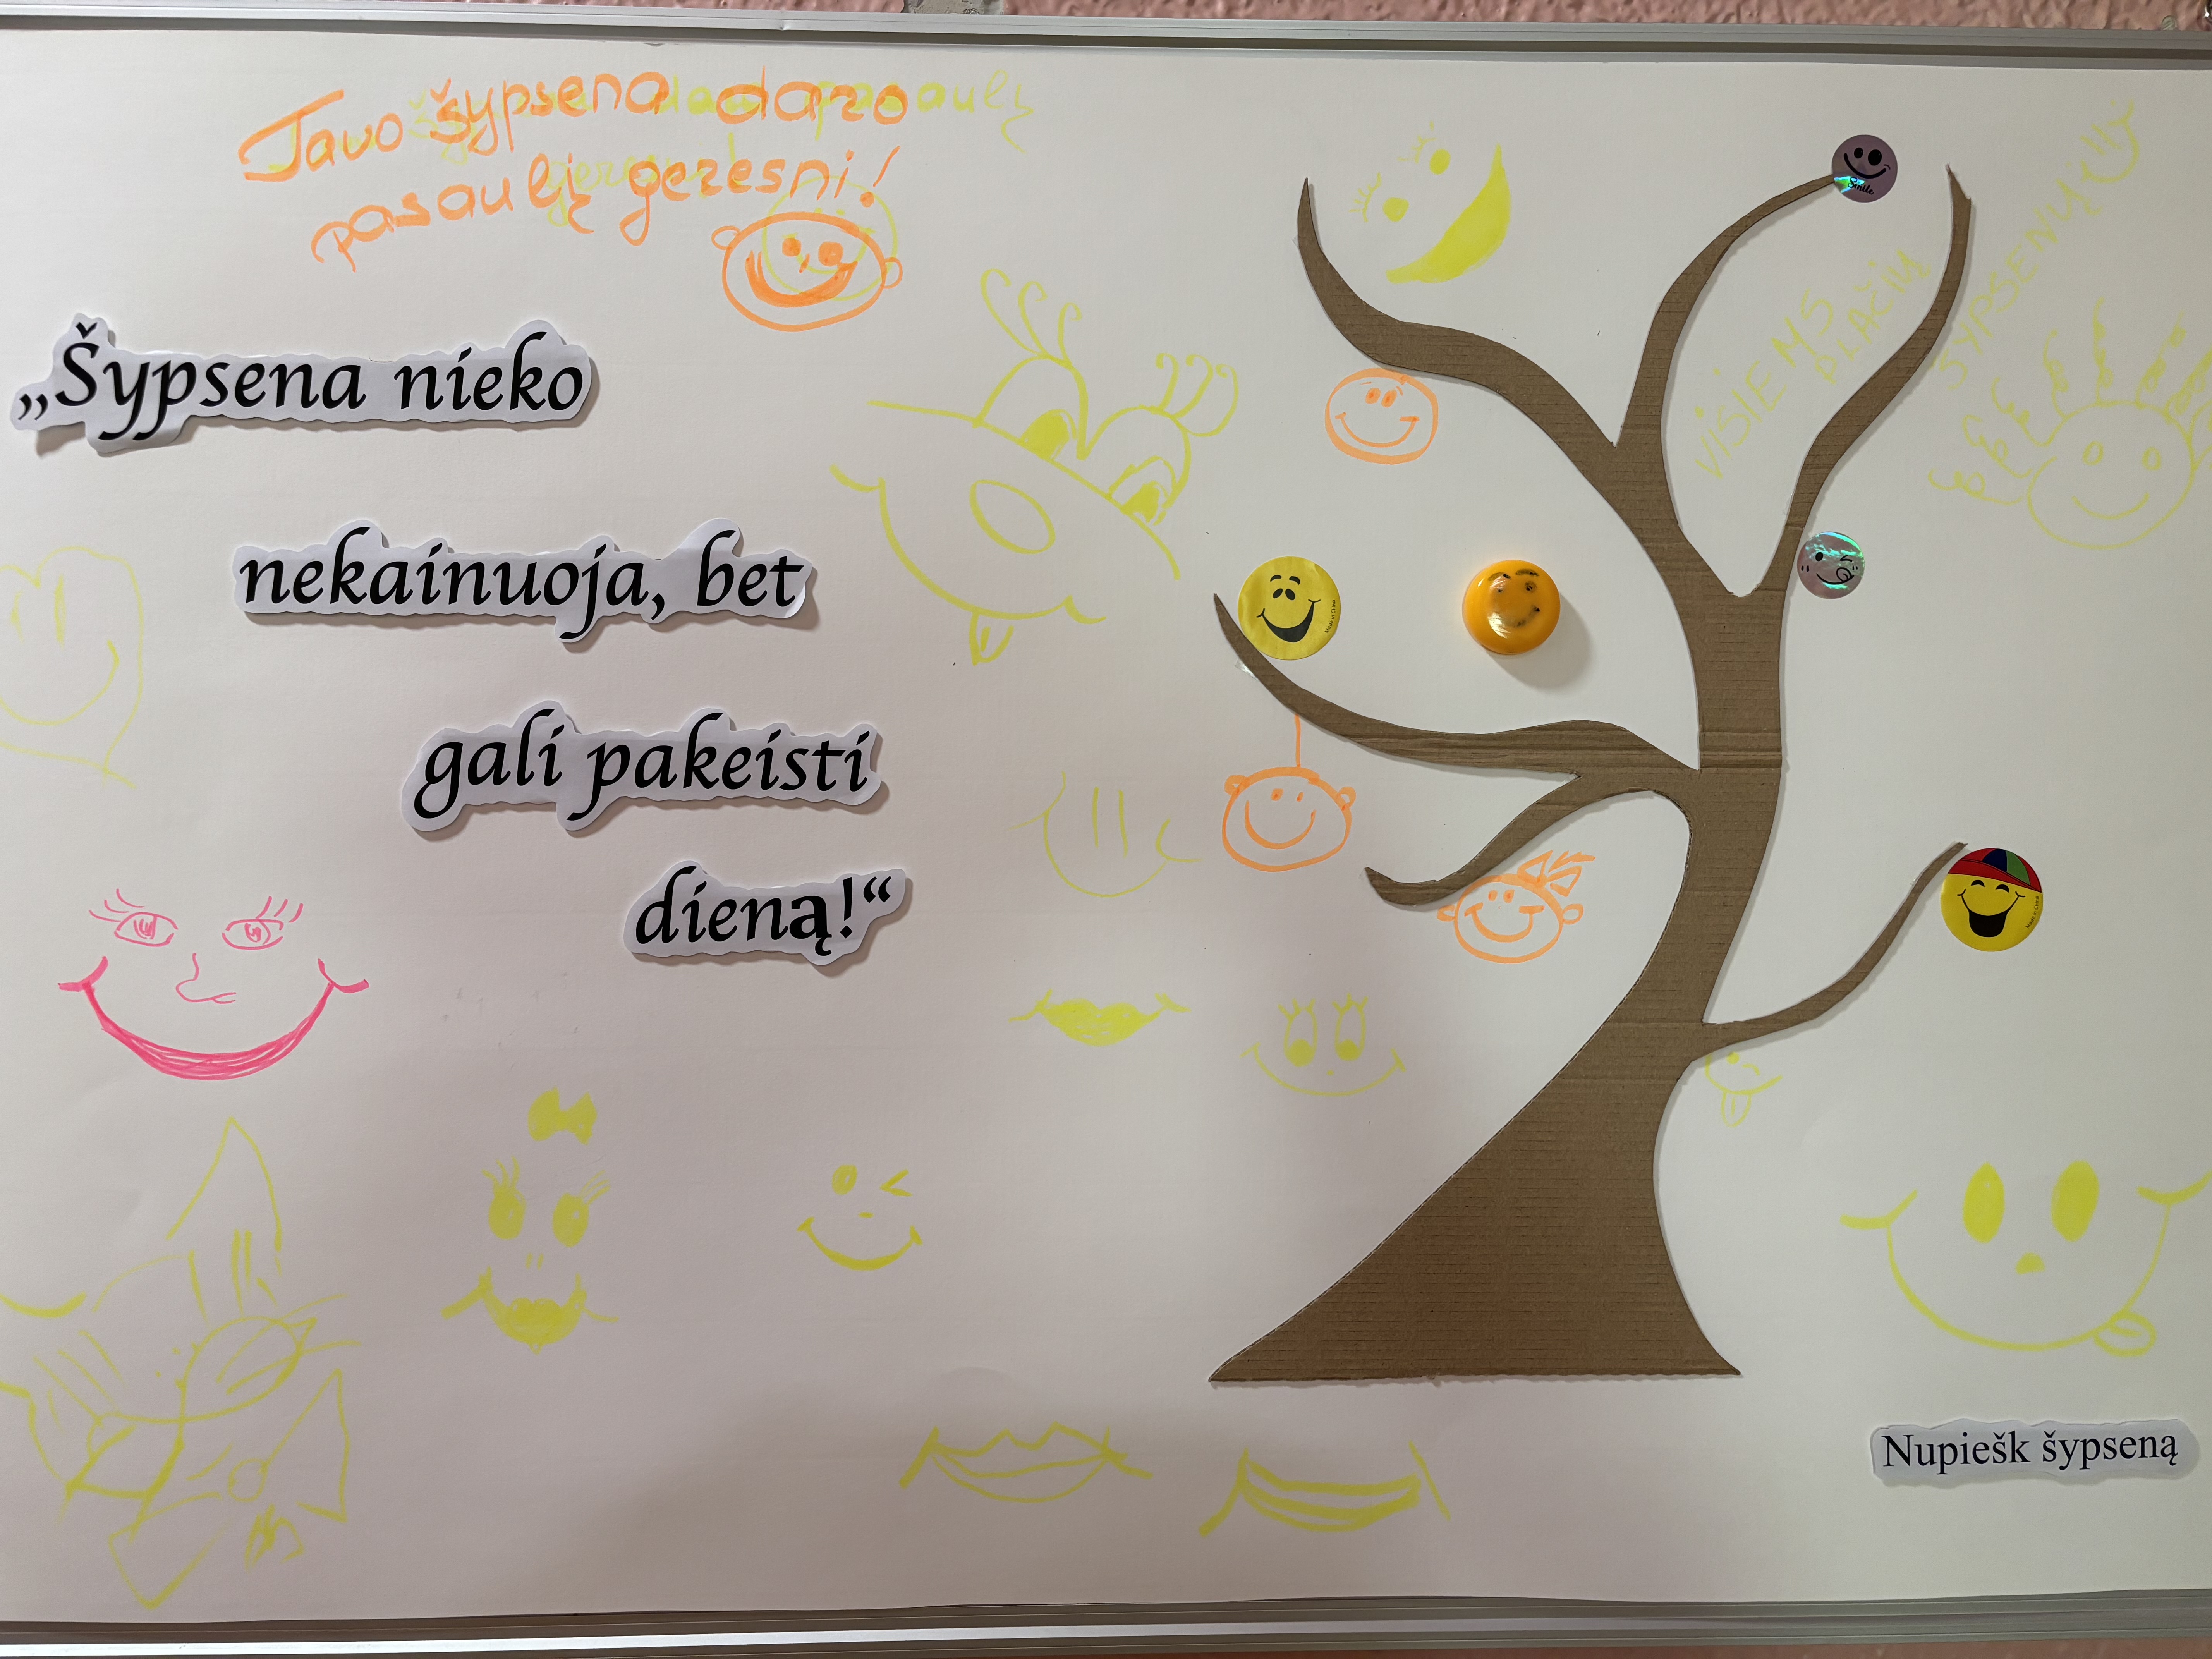 Tavo šypsena daro
pasaulį geresni!
„Šypsena nieko
nekainuoja, bet
gali pakeisti
dieną!“
VISIEMS
PLAČIŲ
ŠYPSENŲ
Smile
Made in China
Made in China
Nupiešk šypseną